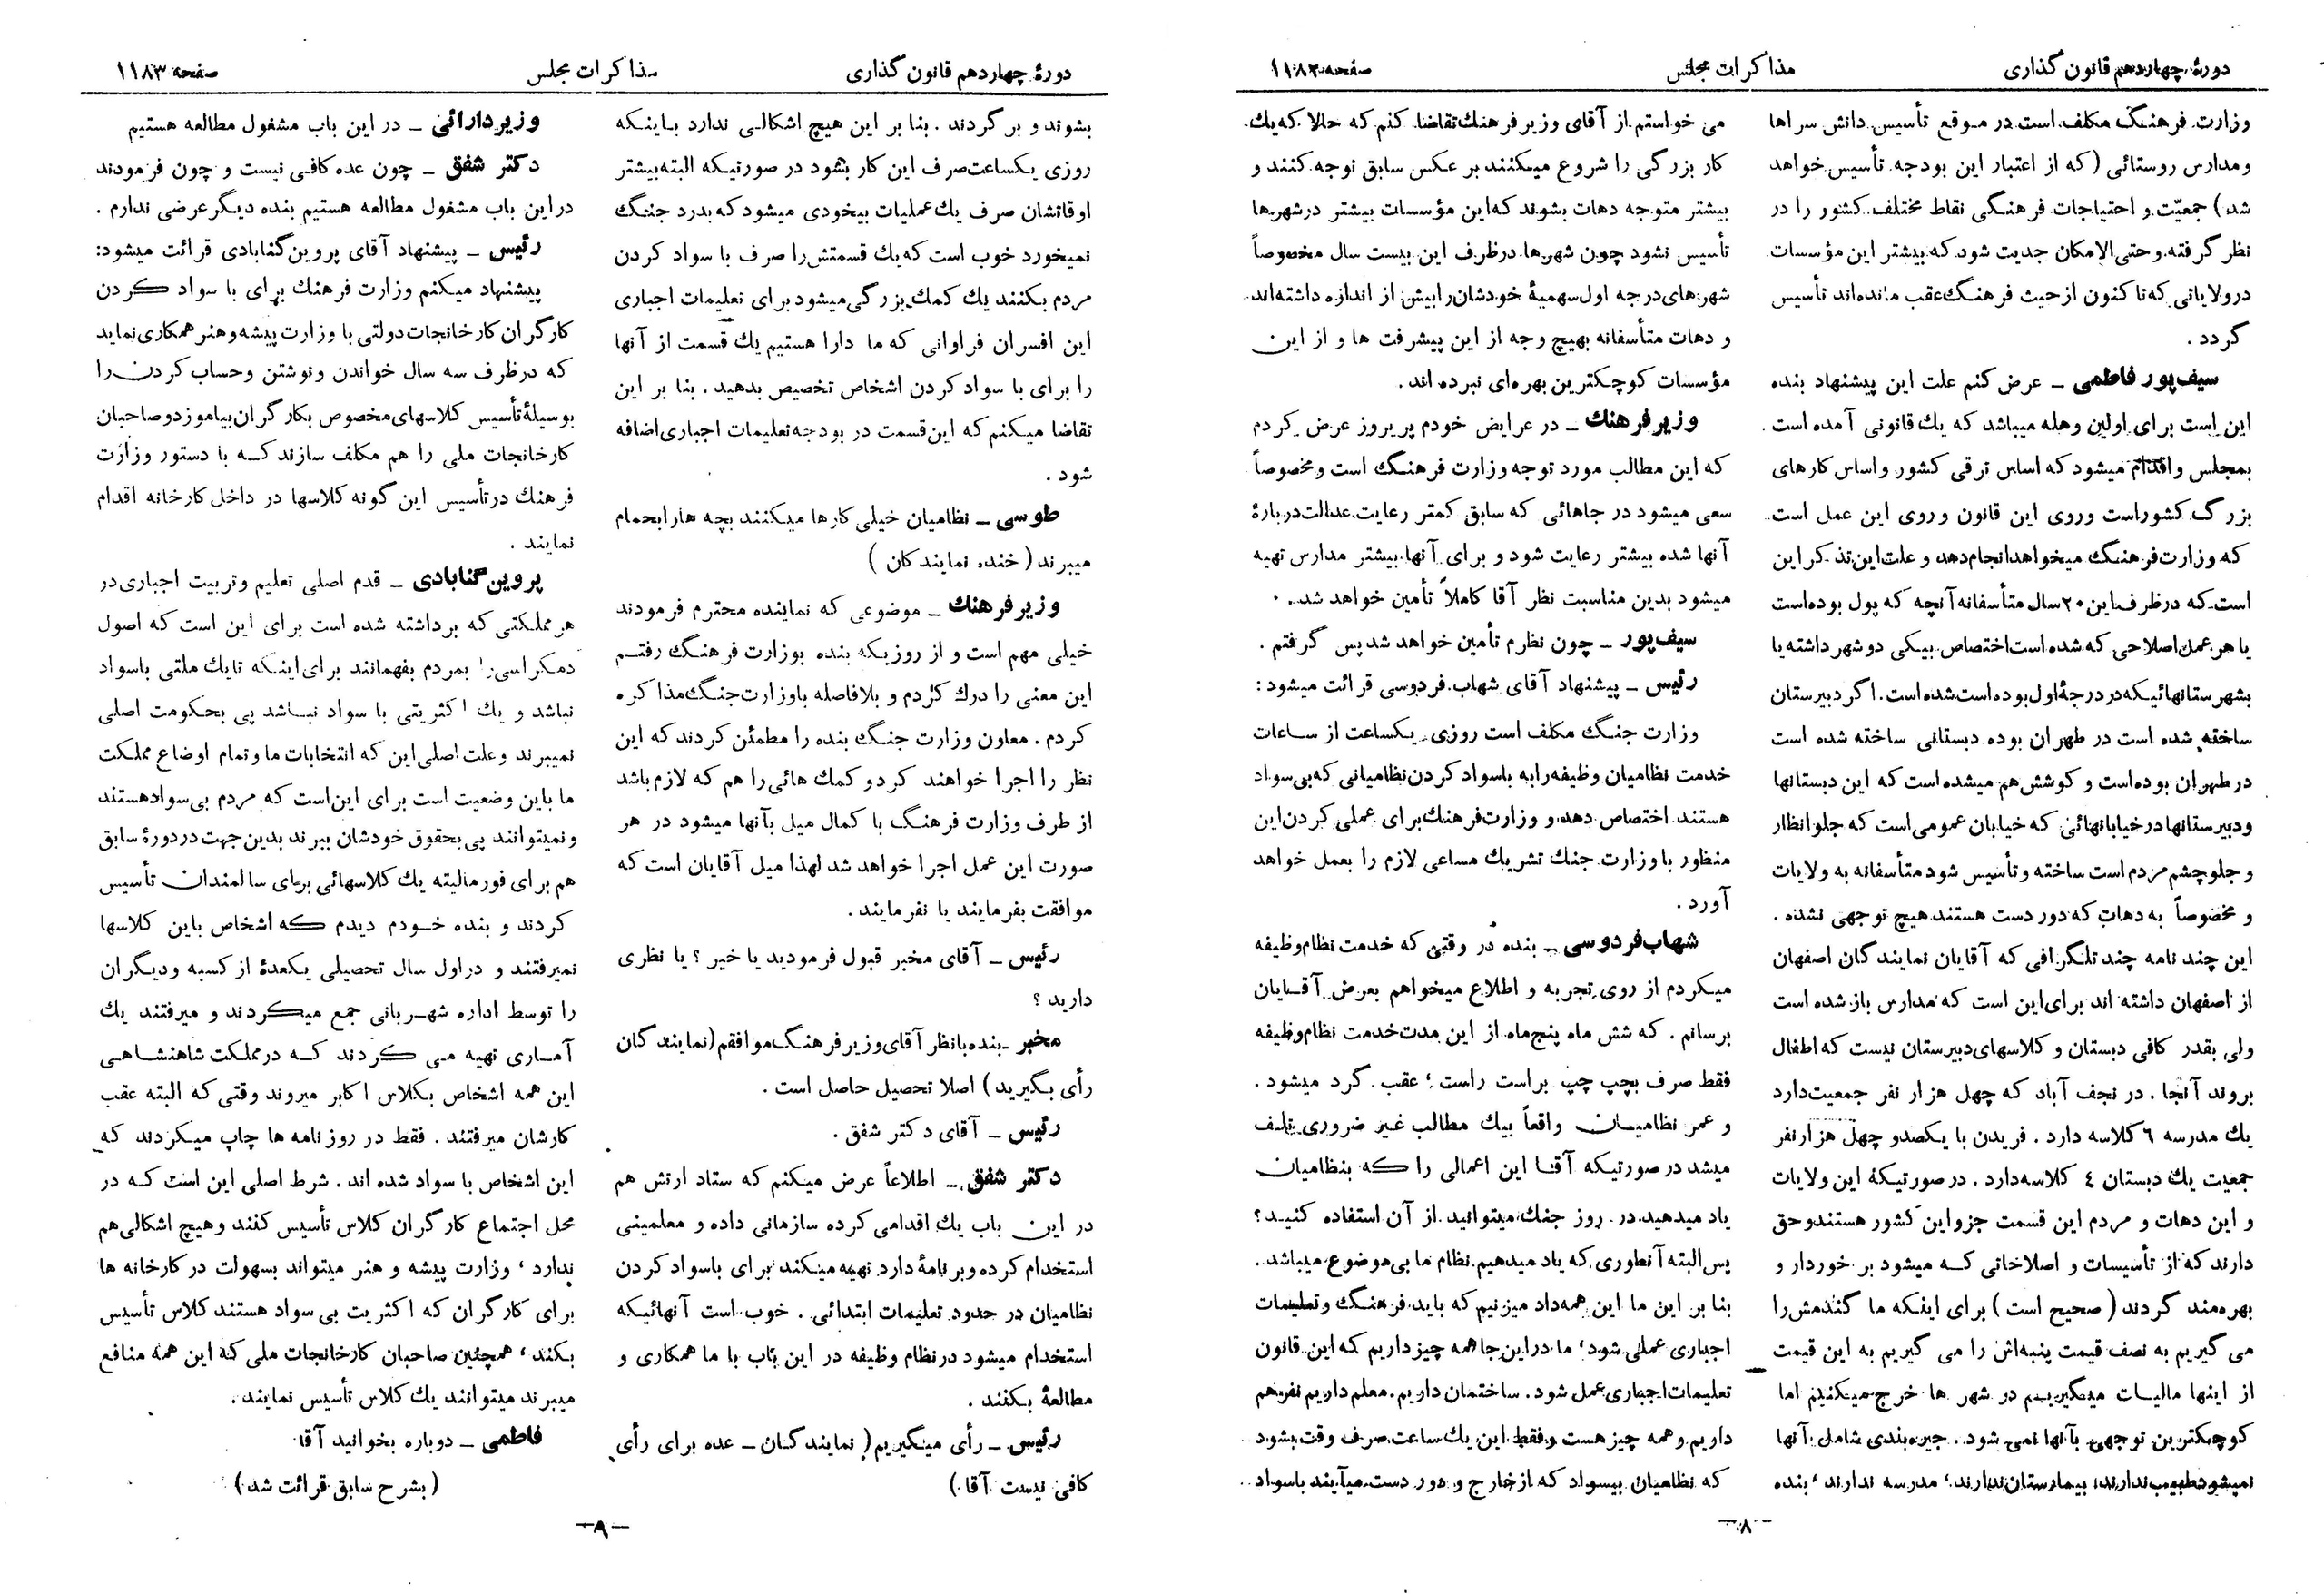 دورهٔ چهاردهم قانون گذاری
مذاکرات مجلس
صفحه ۱۱۸۲
وزارت فرهنگ مکلف است در موقع تأسیس دانش سراها
و مدارس روستائی (که از اعتبار این بودجه تأسیس خواهد
شد) جمعیّت و احتیاجات فرهنگی نقاط مختلف کشور را در
نظر گرفته و حتی الامکان جدیت شود که بیشتر این مؤسسات
در ولایاتی که تا کنون از حیث فرهنگ عقب مانده‌اند تأسیس
گردد .
سیف پور فاطمی ــ عرض کنم علت این پیشنهاد بنده
این است برای اولین وهله میباشد که یك قانونی آمده است
بمجلس و اقدام میشود که اساس ترقی کشور و اساس کارهای
بزرگ کشور است و روی این قانون و روی این عمل است
که وزارت فرهنگ میخواهد انجام دهد و علت این تذکر این
است که در ظرف این ۲۰ سال متأسفانه آنچه که پول بوده است
یا هر عمل اصلاحی که شده است اختصاص بیکی دو شهر داشته یا
بشهرستانهائیکه در درجهٔ اول بوده است شده است . اگر دبیرستان
ساخته شده است در طهران بوده دبستانی ساخته شده است
در طهران بوده است و کوشش هم میشده است که این دبستانها
و دبیرستانها در خیابانهائی که خیابان عمومی است که جلو انظار
و جلو چشم مردم است ساخته و تأسیس شود متأسفانه به ولایات
و مخصوصاً به دهات که دور دست هستند هیچ توجهی نشده .
این چند نامه چند تلگرافی که آقایان نمایندگان اصفهان
از اصفهان داشته اند برای این است که مدارس باز شده است
ولی بقدر کافی دبستان و کلاسهای دبیرستان نیست که اطفال
بروند آنجا . در نجف آباد که چهل هزار نفر جمعیت دارد
یك مدرسه ٦ کلاسه دارد . فریدن با یکصد و چهل هزار نفر
جمعیت یك دبستان ٤ کلاسه دارد . در صورتیکهٔ این ولایات
و این دهات و مردم این قسمت جزو این کشور هستند و حق
دارند که از تأسیسات و اصلاحاتی کــه میشود بر خوردار و
بهره‌مند گردند (صحیح است) برای اینکه ما گندمش را
می گیریم به نصف قیمت پنبه‌اش را می گیریم به این قیمت
از اینها مالیات میگیریم در شهر ها خرج میکنیم اما
کوچکترین توجهی بآنها نمی شود . جیره‌بندی شامل آنها
نمیشود طبیب ندارند، بیمارستان ندارند، مدرسه ندارند، بنده
می خواستم از آقای وزیر فرهنك تقاضا کنم که حالا که یك
کار بزرگی را شروع میکنند بر عکس سابق توجه کنند و
بیشتر متوجه دهات بشوند که این مؤسسات بیشتر در شهرها
تأسیس نشود چون شهرها در ظرف این بیست سال مخصوصاً
شهرهای درجه اول سهمیهٔ خودشان را بیش از اندازه داشته‌اند
و دهات متأسفانه بهیچ وجه از این پیشرفت ها و از این
مؤسسات کوچکترین بهره‌ای نبرده اند.
وزیر فرهنك ــ در عرایض خودم پریروز عرض کردم
که این مطالب مورد توجه وزارت فرهنگ است و مخصوصاً
سعی میشود در جاهائی که سابق کمتر رعایت عدالت در بارهٔ
آنها شده بیشتر رعایت شود و برای آنها بیشتر مدارس تهیه
میشود بدین مناسبت نظر آقا کاملاً تأمین خواهد شد .
سیف پور ــ چون نظرم تأمین خواهد شد پس گرفتم .
رئیس ــ پیشنهاد آقای شهاب فردوسی قرائت میشود :
وزارت جنگ مکلف است روزی یکساعت از ساعات
خدمت نظامیان وظیفه را به باسواد کردن نظامیانی که بی سواد
هستند اختصاص دهد و وزارت فرهنك برای عملی کردن این
منظور با وزارت جنك تشریك مساعی لازم را بعمل خواهد
آورد .
شهاب فردوسی ــ بنده در وقتی که خدمت نظام وظیفه
میکردم از روی تجربه و اطلاع میخواهم بعرض آقایان
برسانم . که شش ماه پنج ماه از این مدت خدمت نظام وظیفه
فقط صرف بچپ چپ براست راست ؛ عقب گرد میشود .
و عمر نظامیان واقعاً بیك مطالب غیر ضروری تلف
میشد در صورتیکه آقا این اعمالی را که بنظامیان
یاد میدهید در روز جنك میتوانید از آن استفاده کنید ؟
پس البته آنطوری که یاد میدهیم نظام ما بی موضوع میباشد .
بنا بر این ما این همه داد میزنیم که باید فرهنگ و تعلیمات
اجباری عملی شود ؛ ما در این جا همه چیز داریم که این قانون
تعلیمات اجباری عمل شود . ساختمان داریم . معلم داریم نفر هم
داریم و همه چیز هست و فقط این یك ساعت صرف وقت بشود
که نظامیان بیسواد که از خارج و دور دست میآیند باسواد
ــ۸ــ
دورهٔ چهاردهم قانون گذاری
مذاکرات مجلس
صفحه ۱۱۸۳
بشوند و بر گردند . بنا بر این هیچ اشکالی ندارد باینکه
روزی یکساعت صرف این کار بشود در صورتیکه البته بیشتر
اوقاتشان صرف یك عملیات بیخودی میشود که بدرد جنگ
نمیخورد خوب است که یك قسمتش را صرف با سواد کردن
مردم بکنند یك کمك بزرگی میشود برای تعلیمات اجباری
این افسران فراوانی که ما دارا هستیم یك قسمت از آنها
را برای با سواد کردن اشخاص تخصیص بدهید . بنا بر این
تقاضا میکنم که این قسمت در بودجه تعلیمات اجباری اضافه
شود .
طوسی ــ نظامیان خیلی کارها میکنند بچه هارا بحمام
میبرند ( خنده نمایندگان )
وزیر فرهنك ــ موضوعی که نماینده محترم فرمودند
خیلی مهم است و از روزیکه بنده بوزارت فرهنگ رفتم
این معنی را درك کردم و بلافاصله با وزارت جنگ مذاکره
کردم . معاون وزارت جنگ بنده را مطمئن کردند که این
نظر را اجرا خواهند کرد و کمك هائی را هم که لازم باشد
از طرف وزارت فرهنگ با کمال میل بآنها میشود در هر
صورت این عمل اجرا خواهد شد لهذا میل آقایان است که
موافقت بفرمایند یا نفرمایند .
رئیس ــ آقای مخبر قبول فرمودید یا خیر ؟ یا نظری
دارید ؟
مخبر ــ بنده با نظر آقای وزیر فرهنگ موافقم (نمایندگان
رأی بگیرید) اصلا تحصیل حاصل است .
رئیس ــ آقای دکتر شفق .
دکتر شفق ــ اطلاعاً عرض میکنم که ستاد ارتش هم
در این باب یك اقدامی کرده سازمانی داده و معلمینی
استخدام کرده و برنامهٔ دارد تهیه میکند برای باسواد کردن
نظامیان در حدود تعلیمات ابتدائی . خوب است آنهائیکه
استخدام میشود در نظام وظیفه در این باب با ما همکاری و
مطالعهٔ بکنند .
رئیس ــ رأی میگیریم ( نمایندگان ــ عده برای رأی
کافی نیست آقا )
وزیر دارائی ــ در این باب مشغول مطالعه هستیم
دکتر شفق ــ چون عده کافی نیست و چون فرمودند
در این باب مشغول مطالعه هستیم بنده دیگر عرضی ندارم .
رئیس ــ پیشنهاد آقای پروین گنابادی قرائت میشود:
پیشنهاد میکنم وزارت فرهنك برای با سواد کردن
کارگران کارخانجات دولتی با وزارت پیشه و هنر همکاری نماید
که در ظرف سه سال خواندن و نوشتن و حساب کردن را
بوسیلهٔ تأسیس کلاسهای مخصوص بکارگران بیاموزد و صاحبان
کارخانجات ملی را هم مکلف سازند کــه با دستور وزارت
فرهنك در تأسیس این گونه کلاسها در داخل کارخانه اقدام
نمایند .
پروین گنابادی ــ قدم اصلی تعلیم و تربیت اجباری در
هر مملکتی که برداشته شده است برای این است که اصول
دمکراسی را بمردم بفهمانند برای اینکه تا یك ملتی باسواد
نباشد و یك اکثریتی با سواد نباشد پی بحکومت اصلی
نمیبرند و علت اصلی این که انتخابات ما و تمام اوضاع مملکت
ما باین وضعیت است برای این است که مردم بی سواد هستند
و نمیتوانند پی بحقوق خودشان ببرند بدین جهت در دورهٔ سابق
هم برای فورمالیته یك کلاسهائی برای سالمندان تأسیس
کردند و بنده خودم دیدم که اشخاص باین کلاسها
نمیرفتند و در اول سال تحصیلی یکعدهٔ از کسبه و دیگران
را توسط اداره شهربانی جمع میکردند و میرفتند یك
آماری تهیه می کردند کــه در مملکت شاهنشاهی
این همه اشخاص بکلاس اکابر میروند وقتی که البته عقب
کارشان میرفتند . فقط در روزنامه ها چاپ میکردند که
این اشخاص با سواد شده اند . شرط اصلی این است کــه در
محل اجتماع کارگران کلاس تأسیس کنند و هیچ اشکالی هم
ندارد ؛ وزارت پیشه و هنر میتواند بسهولت در کارخانه ها
برای کارگران که اکثریت بی سواد هستند کلاس تأسیس
بکند ؛ همچنین صاحبان کارخانجات ملی که این همه منافع
میبرند میتوانند یك کلاس تأسیس نمایند .
فاطمی ــ دوباره بخوانید آقا
( بشرح سابق قرائت شد )
ــ۹ــ